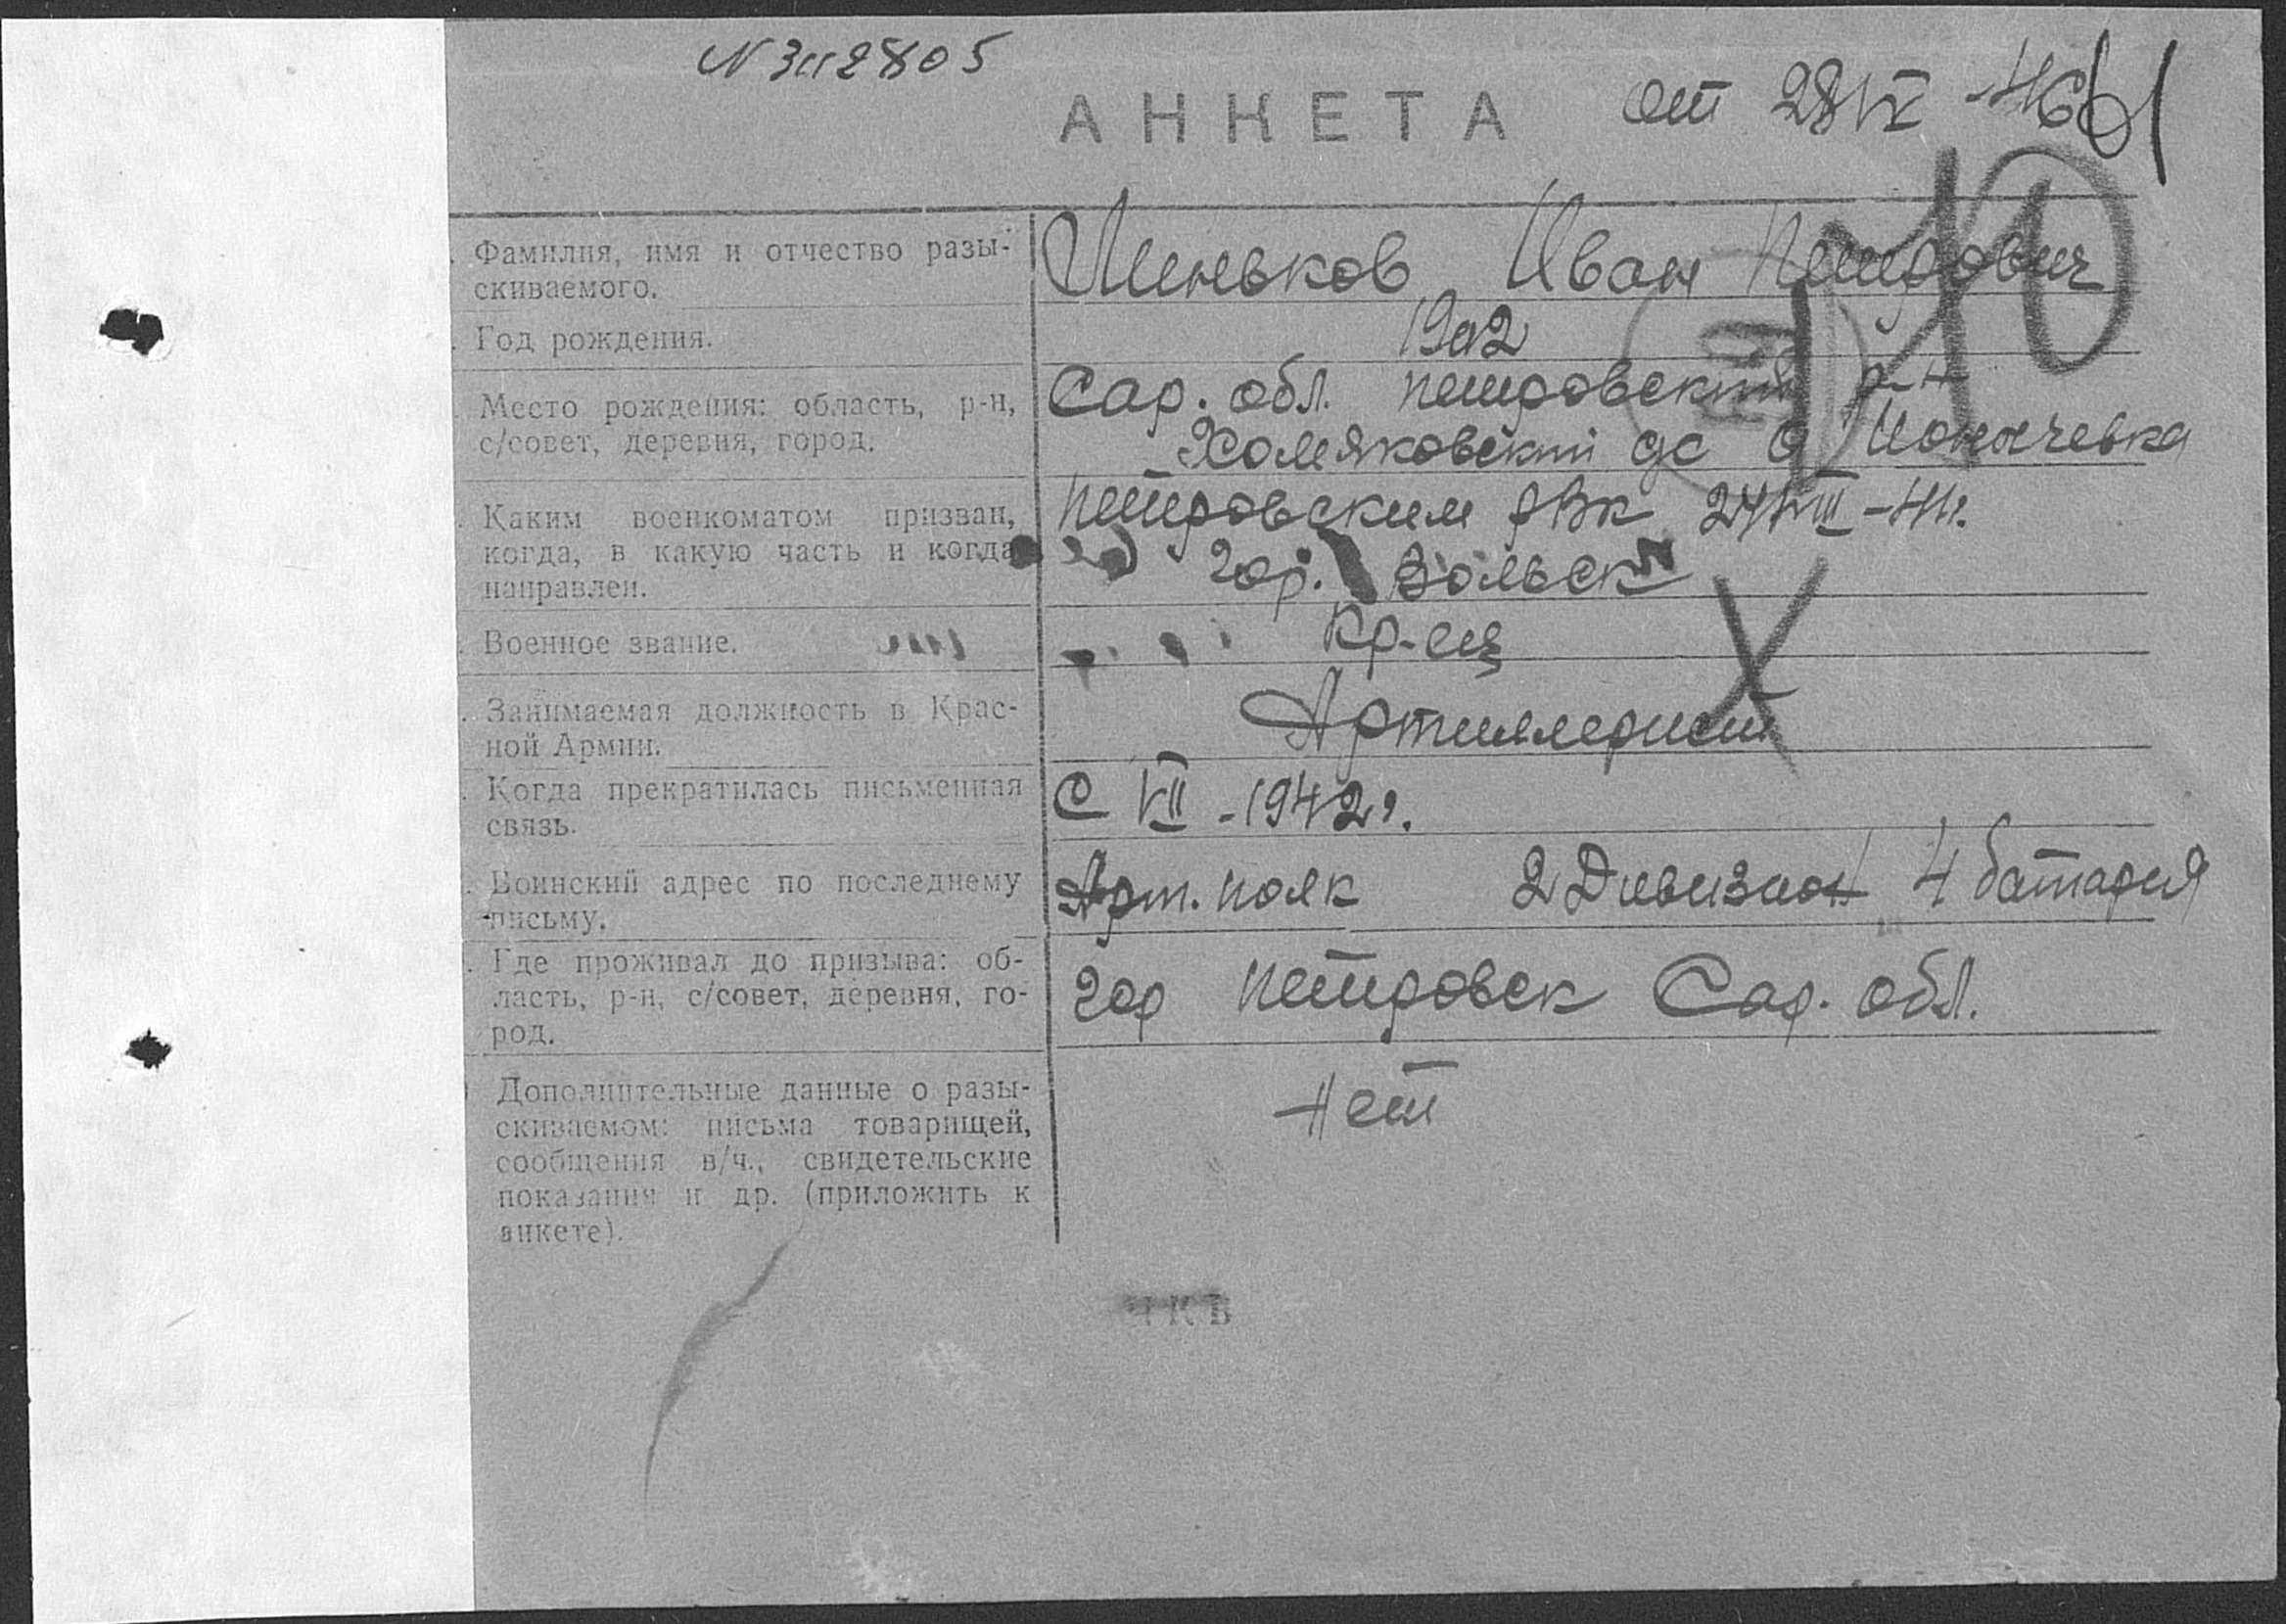 N 3112805
АНКЕТА от 28 IX -46
10
Фамилия, имя и отчество разы-
скиваемого.
Меньков Иван Петрович
Год рождения.
1902
Место рождения: область, р-н,
с/совет, деревня, город.
Сар. обл. Петровский р-н
Хомяковский с/с
Каким военкоматом призван,
когда, в какую часть и когда
направлен.
Петровским РВК 24/VIII-41г.
гор. Вольск
Военное звание.
Кр-ец
Занимаемая должность в Крас-
ной Армии.
Артиллерист
Когда прекратилась письменная
связь.
С VII -1942г.
Воинский адрес по последнему
письму.
Арт. полк 2 Дивизион 4 батарея
Где проживал до призыва: об-
ласть, р-н, с/совет, деревня, го-
род.
гор Петровск Сар. обл.
Дополнительные данные о разы-
скиваемом: письма товарищей,
сообщения в/ч., свидетельские
показания и др. (приложить к
анкете).
Нет